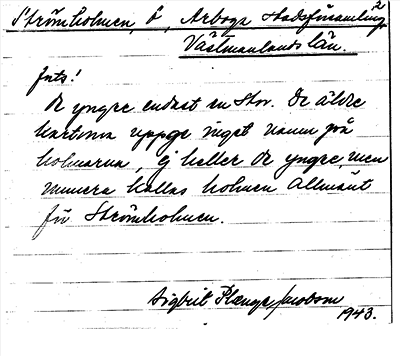 Strömholmen, ö, Arboga stadsförsamling 2
Västmanlands län.
Ints!
De yngre endast en Stor. De äldre
kartorna uppge inget namn på
holmarna, ej heller de yngre, men
numera kallas holmen Allmänt
för Strömholmen.
Sigbrit Plænge Jacobson
1943.